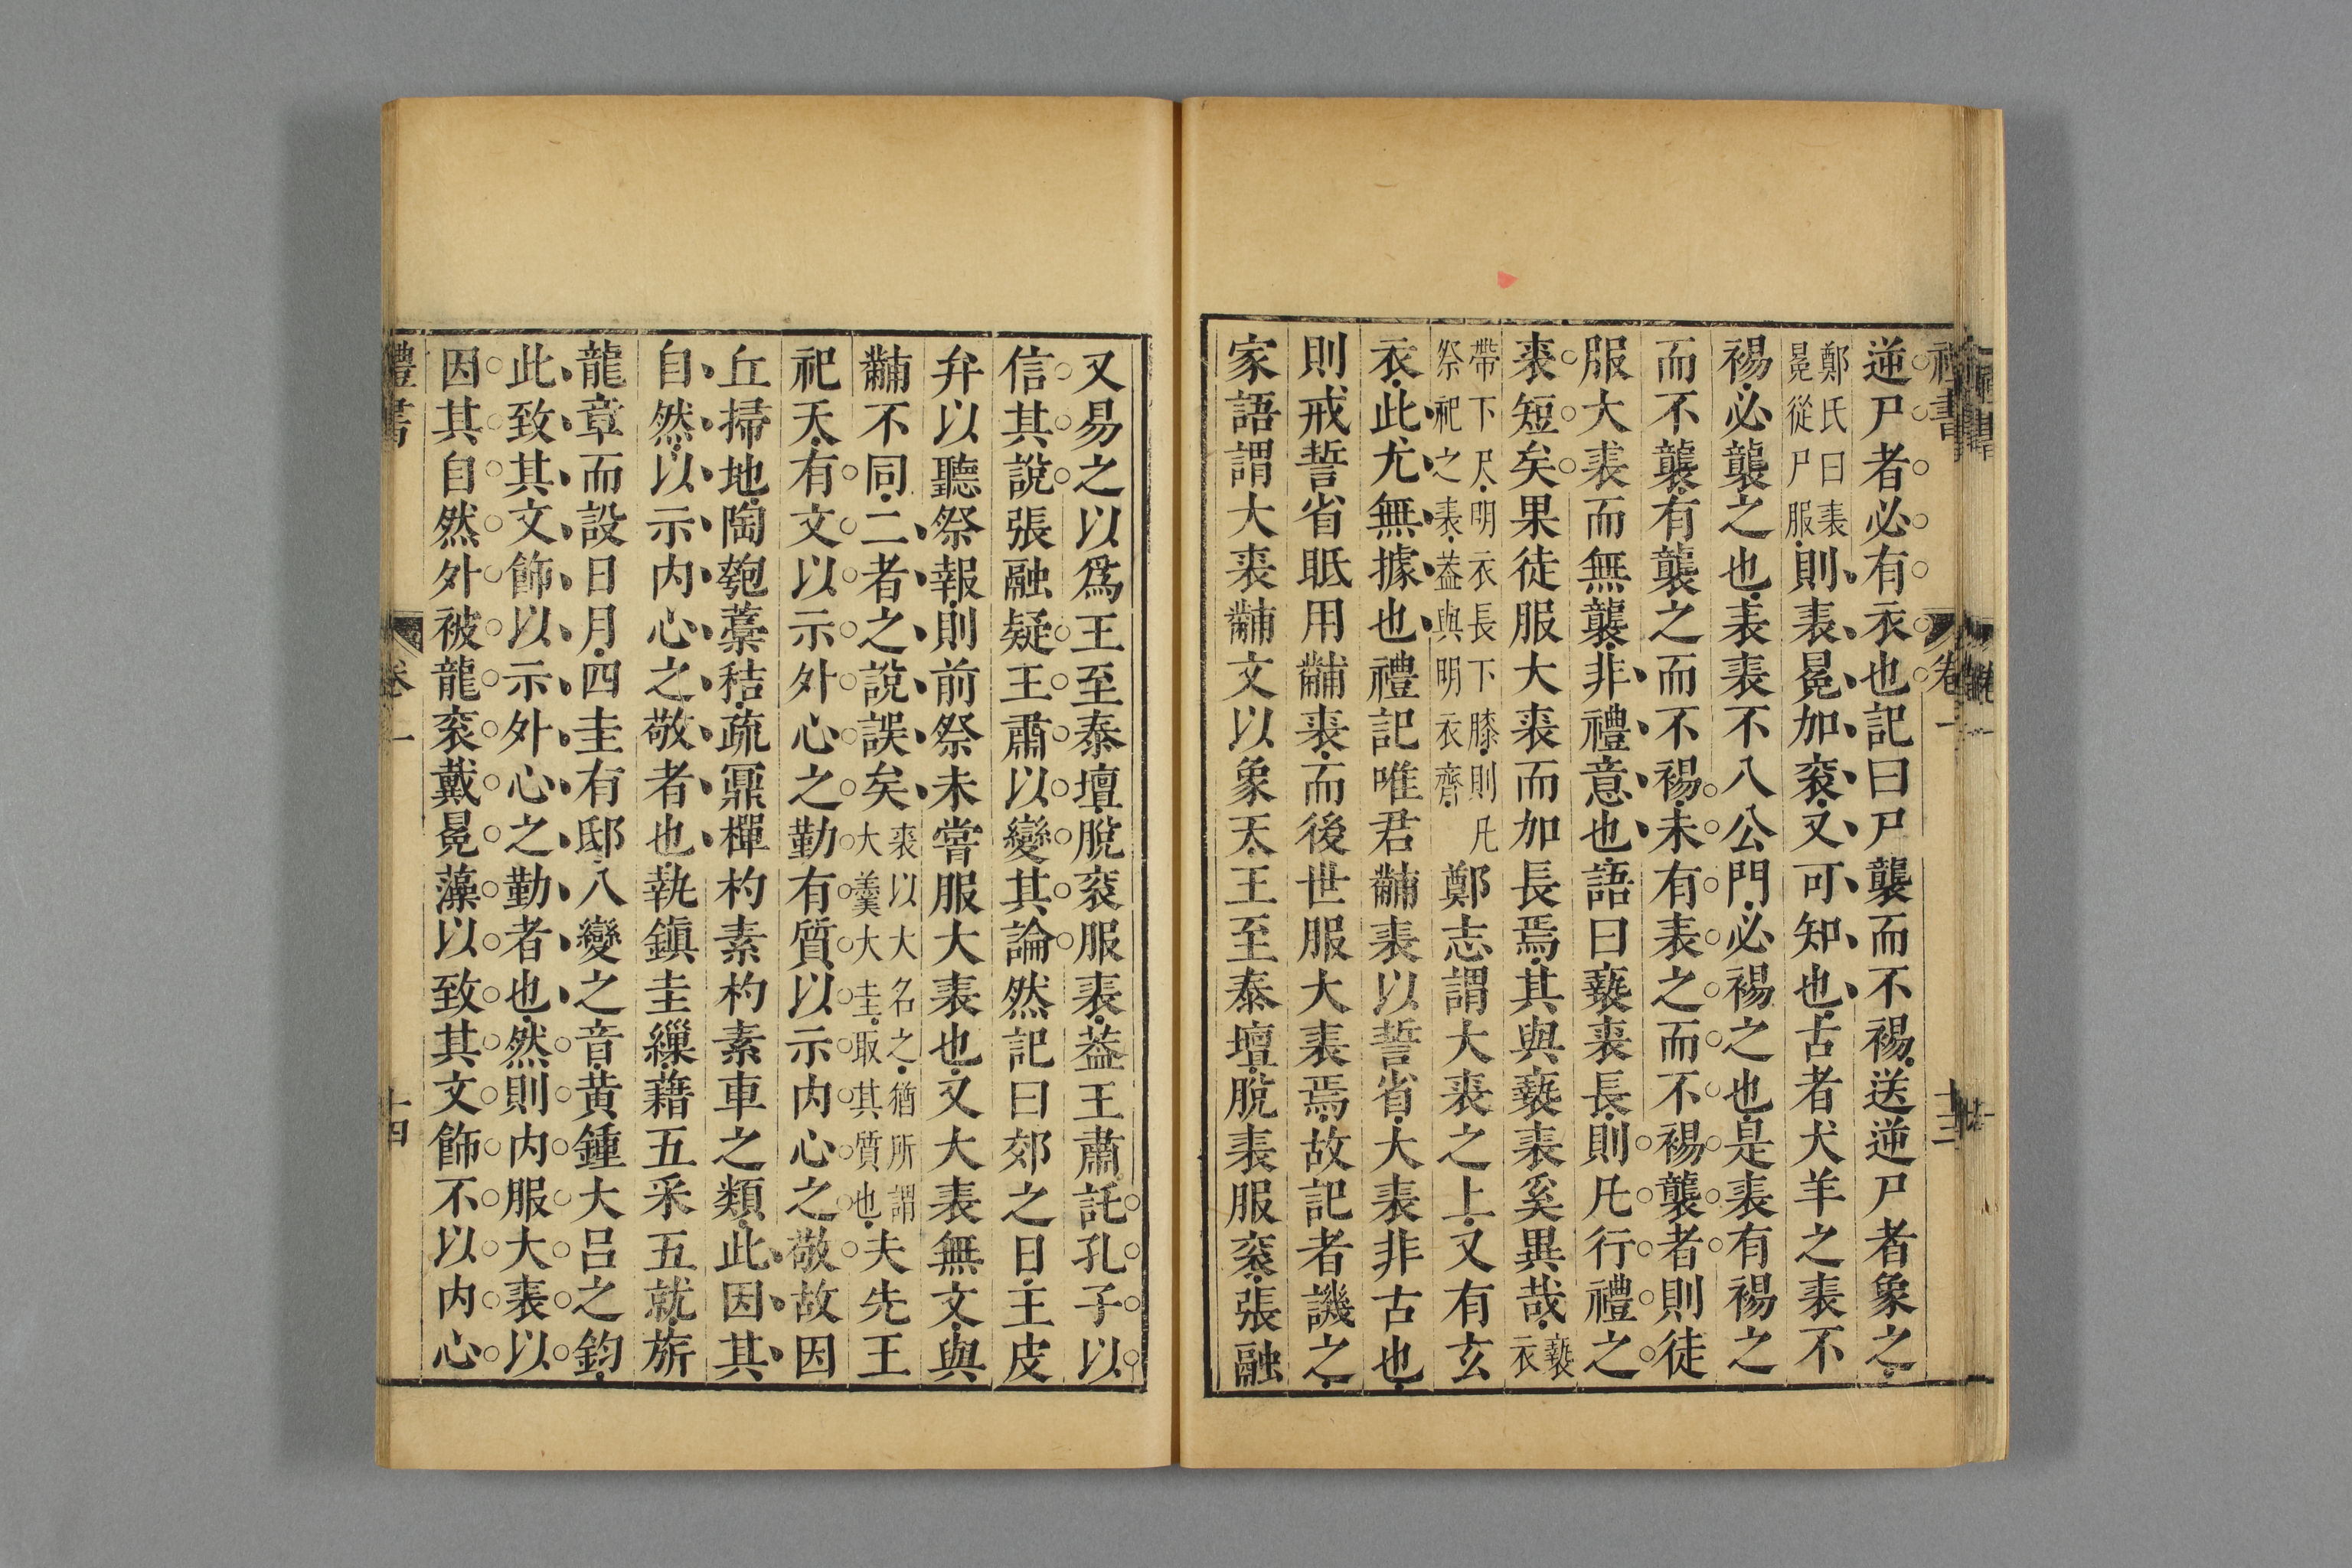 逆尸者必有衣也記曰尸襲而不裼送逆尸者象之
鄭氏曰裘冕從尸服則裘冕加衮又可知也古者犬羊之裘不
裼必襲之也表裘不入公門必裼之也是裘有裼之
而不襲有襲之而不裼未有表之而不裼襲者則徒
服大裘而無襲非禮意也語曰褻裘長則凡行禮之
裘短矣果徒服大裘而加長焉其與褻裘奚異哉褻衣
帶下尺明衣長下膝則凡祭祀之裘葢與明衣齊鄭志謂大裘之上又有玄
衣此尤無據也禮記唯君黼裘以誓省大裘非古也
則戒誓省眂用黼裘而後世服大裘焉故記者譏之
家語謂大裘黼文以象天王至泰壇脫裘服衮張融
又易之以爲王至泰壇脫衮服裘葢王肅託孔子以
信其說張融疑王肅以變其論然記曰郊之日主皮
弁以聽祭報則前祭未嘗服大裘也又大裘無文與
黼不同二者之說誤矣裘以大名之猶所謂大羹大圭取其質也夫先王
祀天有文以示外心之勤有質以示内心之敬故因
丘掃地陶匏藁秸疏鼏樿杓素杓素車之類此因其
自然以示内心之敬者也執鎮圭繅藉五采五就旂
龍章而設日月四圭有邸八變之音黄鍾大吕之鈞
此致其文飾以示外心之勤者也然則内服大裘以
因其自然外被龍衮戴冕藻以致其文飾不以内心
禮書
卷一
十四